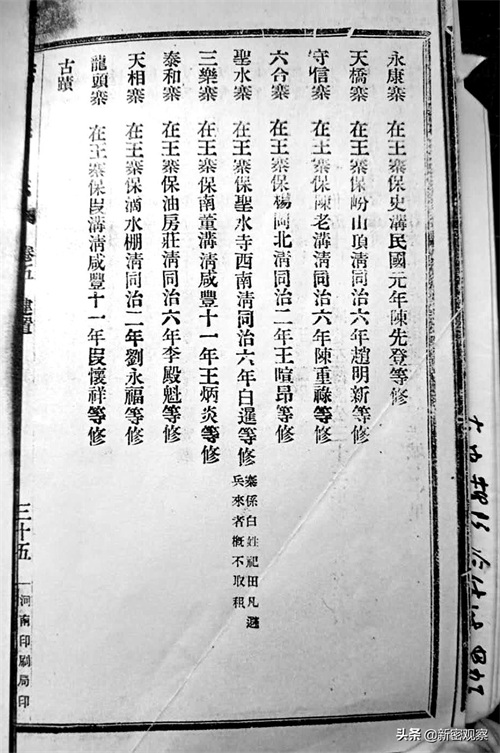 永康寨 在王寨保史溝民國元年陳先登等修
天橋寨 在王寨保岎山頂清同治六年趙明新等修
守信寨 在王寨保陳老溝清同治六年陳重祿等修
六合寨 在王寨保楊崗北清同治二年王暄昂等修
聖水寨 在王寨保聖水寺西南清同治六年白暹等修 寨係白姓祀田凡避
兵來者概不取租
三樂寨 在王寨保南董溝清咸豐十一年王炳炎等修
泰和寨 在王寨保油房莊清同治六年李殿魁等修
天相寨 在王寨保滴水棚清同治二年劉永福等修
龍頭寨 在王寨保溝清咸豐十一年懷祥等修
古蹟
卷五 建置
三十五
河南印刷局印
头条 @新密观察